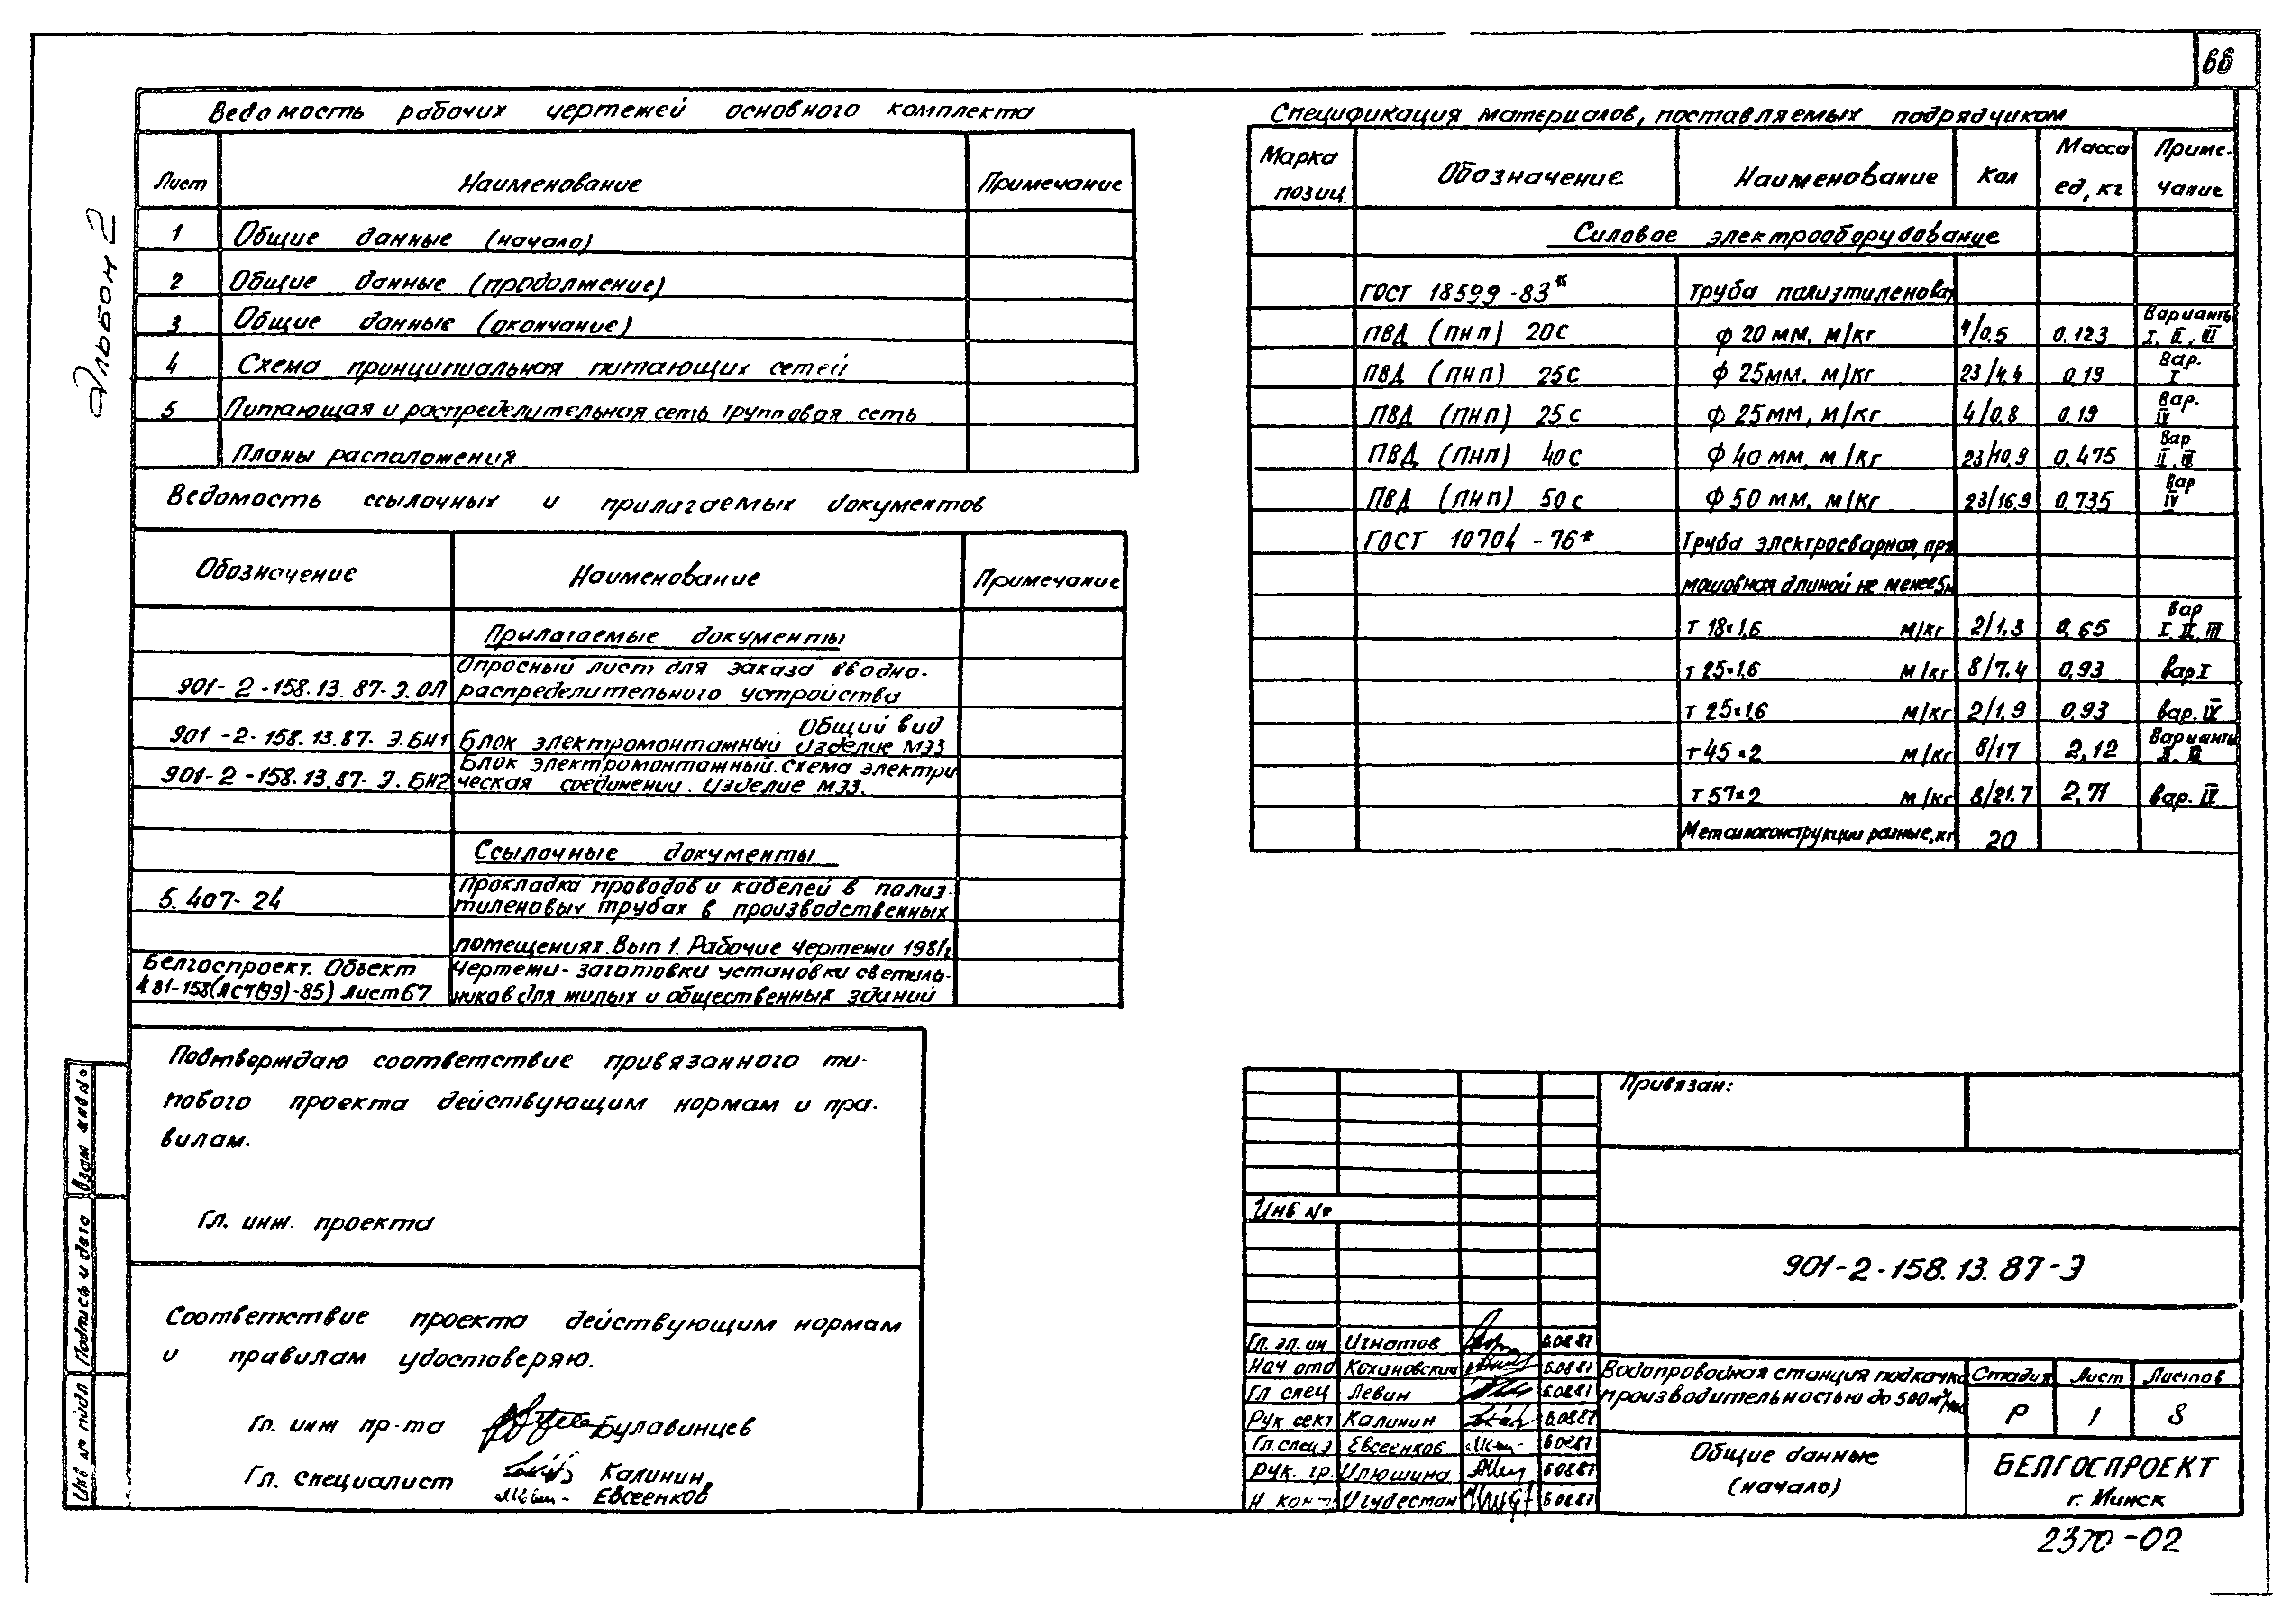 66
Альбом 2
Ведомость рабочих чертежей основного комплекта
Лист Наименование Примечание
1 Общие данные (начало)
2 Общие данные (продолжение)
3 Общие данные (окончание)
4 Схема принципиальная питающих сетей
5 Питающая и распределительная сеть групповая сеть
Планы расположения
Ведомость ссылочных и прилагаемых документов
Обозначение Наименование Примечание
Прилагаемые документы
Опросный лист для заказа вводно-
901-2-158.13.87-Э.ОЛ распределительного устройства
Общий вид
901-2-158.13.87-Э.БН1 Блок электромонтажный. Изделие МЭЗ
Блок электромонтажный. Схема электри
901-2-158.13.87-Э.БН2 ческая соединений. Изделие МЭЗ.
Ссылочные документы
Прокладка проводов и кабелей в полиэ-
5.407-24 тиленовых трубах в производственных
помещениях. Вып 1. Рабочие чертежи 1981г.
Белгоспроект. Объект Чертежи-заготовки установки светиль-
4.81-158 Лист 67 ников для жилых и общественных зданий
Подтверждаю соответствие привязанного ти-
пового проекта действующим нормам и пра-
вилам.
Гл. инж. проекта
Соответствие проекта действующим нормам
и правилам удостоверяю.
Гл. инж пр-та Булавинцев
Гл. специалист Калинин
Евсеенков
Взам инв №
Подпись и дата
Инв № подл
Спецификация материалов, поставляемых подрядчиком
Марка позиц. Обозначение Наименование Кол Масса ед, кг Приме-чание
Силовое электрооборудование
ГОСТ 18599-83* Труба полиэтиленовая
ПВД (ПНП) 20с ф 20 мм, м/кг 4/0.5 0,123 Варианты I, II, III
ПВД (ПНП) 25с ф 25мм, м/кг 23/4,4 0,19 Вар. I
ПВД (ПНП) 25с ф 25 мм, м/кг 4/0,8 0,19 Вар. IV
ПВД (ПНП) 40с ф 40 мм, м/кг 23/10,9 0,475 Вар II, III
ПВД (ПНП) 50с ф 50 мм, м/кг 23/16.9 0,735 Вар IV
ГОСТ 10704-76* Труба электросварная, пря
мошовная длиной не менее 5м
Т 18×1,6 м/кг 2/1,3 0,65 Вар I, II, III
т 25×1,6 м/кг 8/7.4 0,93 вар I
т 25×1,6 м/кг 2/1,9 0,93 вар. IV
т 45×2 м/кг 8/17 2,12 Варианты II, III
т 57×2 м/кг 8/21.7 2,71 вар. IV
Металлоконструкции разные, кг 20
Привязан:
Инв №
901-2-158.13.87-Э
Гл. эл. ин Игнатов 60887
Нач отд Кохановский 60887
Гл спец Левин 60887
Рук сект Калинин 60887
Гл. спец э Евсеенков 60887
Рук. гр. Илюшина 60887
Н контр Игудесман 60887
Водопроводная станция подкачки
производительностью до 500 м³/час
Стадия Лист Листов
Р 1 8
Общие данные
(начало)
БЕЛГОСПРОЕКТ
г. Минск
2370-02